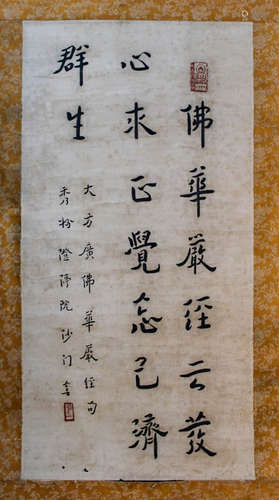 佛華嚴經云發
心求正覺忘己濟
群生
大方廣佛華嚴經句
澄渟院沙门